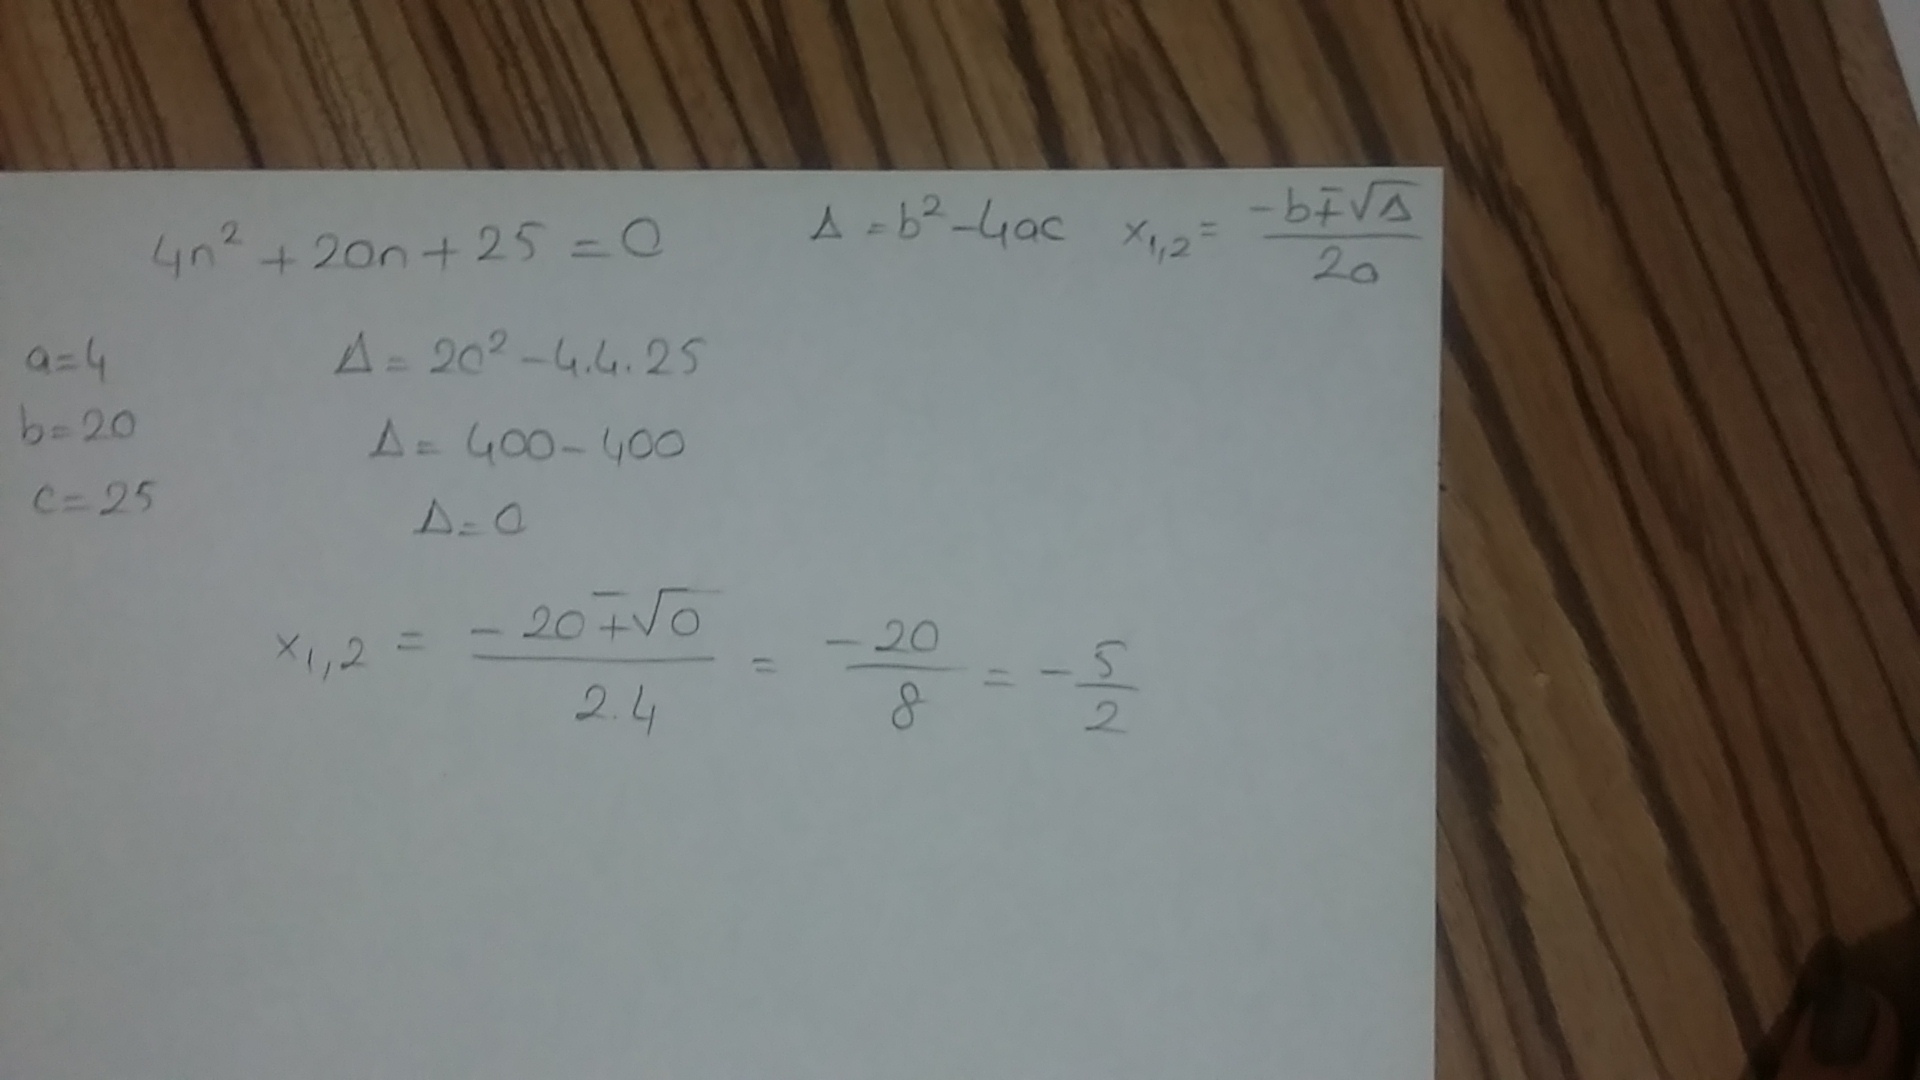 4n² + 20n + 25 = 0 Δ = b² - 4ac x₁,₂ = (-b∓√Δ)/(2a)
a=4 Δ = 20² - 4.4.25
b=20 Δ = 400 - 400
c=25 Δ = 0
x₁,₂ = (-20∓√0)/(2.4) = (-20)/8 = -5/2